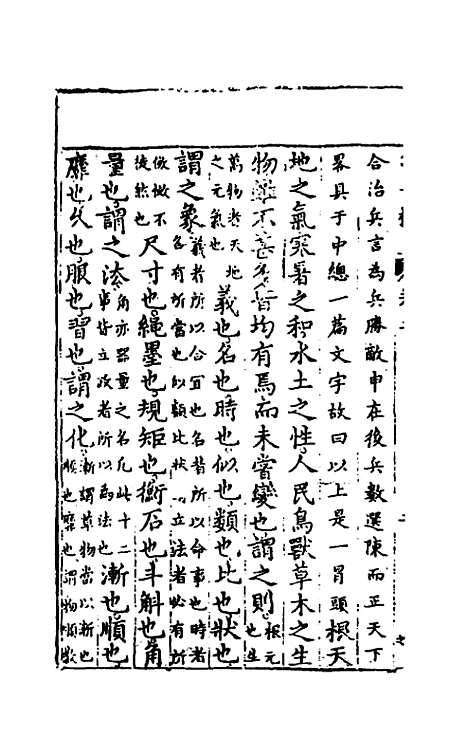 合治兵言為兵勝敵申在後兵數選陳而正天下
畧具于中總一篇文字故曰以上是一冒頭根天
地之氣寒暑之和水土之性人民鳥獸草木之生
物雖不甚多皆均有焉而未嘗變也謂之則根元也生
萬物者天地之元氣也義也名也時也似也類也比也狀也
謂之象義者所以合宜也名者所以命事也時者名有所當也似類比狀立法者必有所
倣做不徒然也尺寸也繩墨也規矩也衡石也斗斛也角
量也謂之法角亦器量之名凡此十二事皆立政者所以為法也漸也順也
靡也久也服也習也謂之化漸謂草物當以漸也順也靡也謂物順教